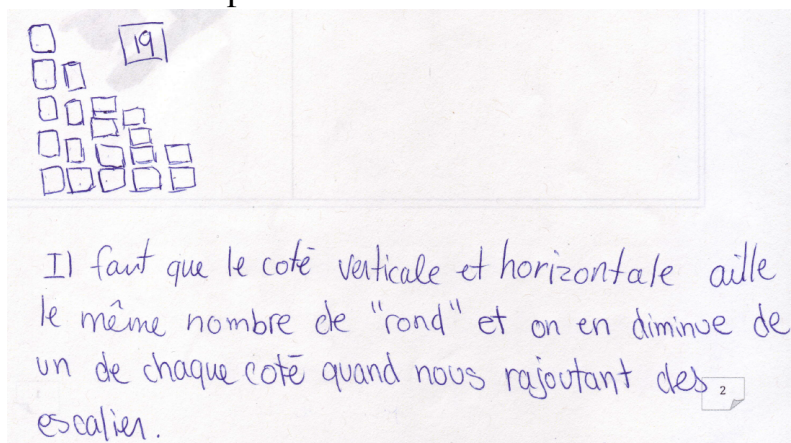 19
Il faut que le coté verticale et horizontale aille
le même nombre de "rond" et on en diminue de
un de chaque coté quand nous rajoutant des
2
escalier.